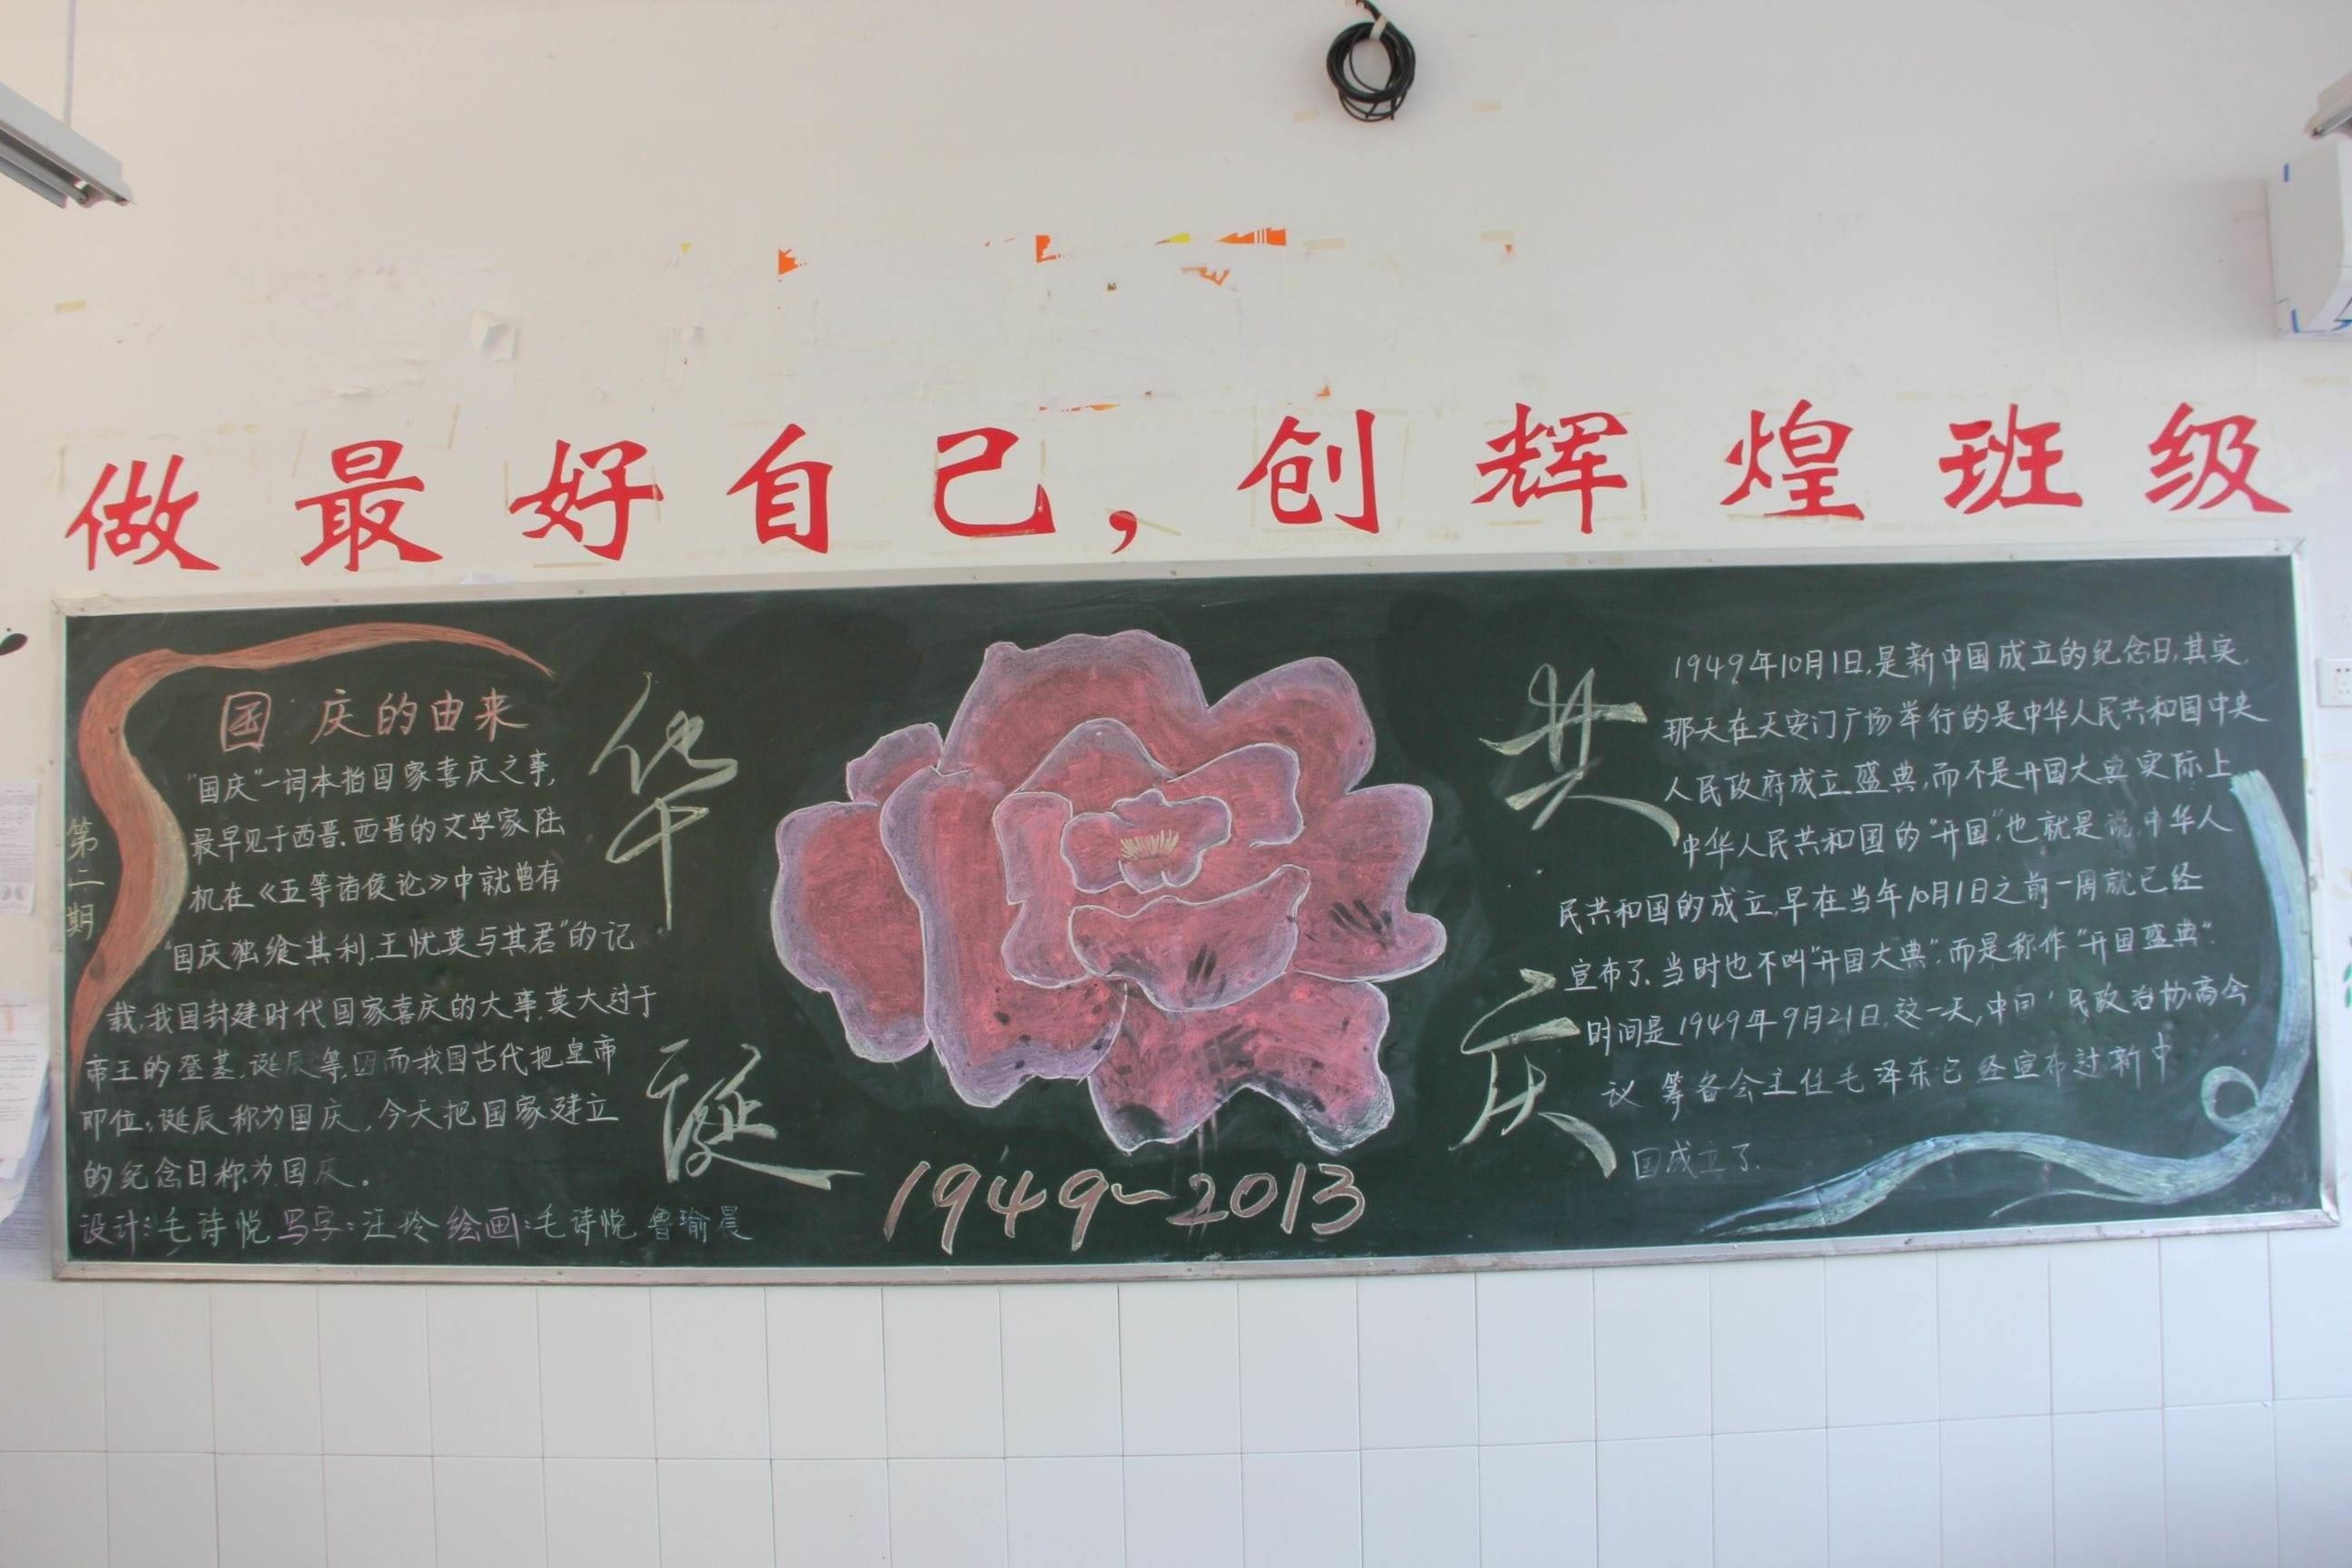 做最好自己，创辉煌班级
国庆的由来
"国庆"一词本指国家喜庆之事,
最早见于西晋.西晋的文学家陆
机在《五等诸侯论》中就曾有
"国庆独飨其利.王忧莫与其君"的记
载.我国封建时代国家喜庆的大事.莫大过于
帝王的登基.诞辰等.因而我国古代把皇帝
即位.诞辰称为国庆.今天把国家建立
的纪念日称为国庆。
设计:毛诗悦 写字:汪玲 绘画:毛诗悦 鲁瑜晨
第二期
华诞
1949~2013
共庆
1949年10月1日.是新中国成立的纪念日.其实.
那天在天安门广场举行的是中华人民共和国中央
人民政府成立盛典,而不是开国大典实际上
中华人民共和国的"开国".也就是说中华人
民共和国的成立.早在当年10月1日之前一周就已经
宣布了.当时也不叫"开国大典".而是称作"开国盛典".
时间是1949年9月21日.这一天,中 民政治协商会
议 筹备会主任毛泽东已经宣布过新中
国成立了.